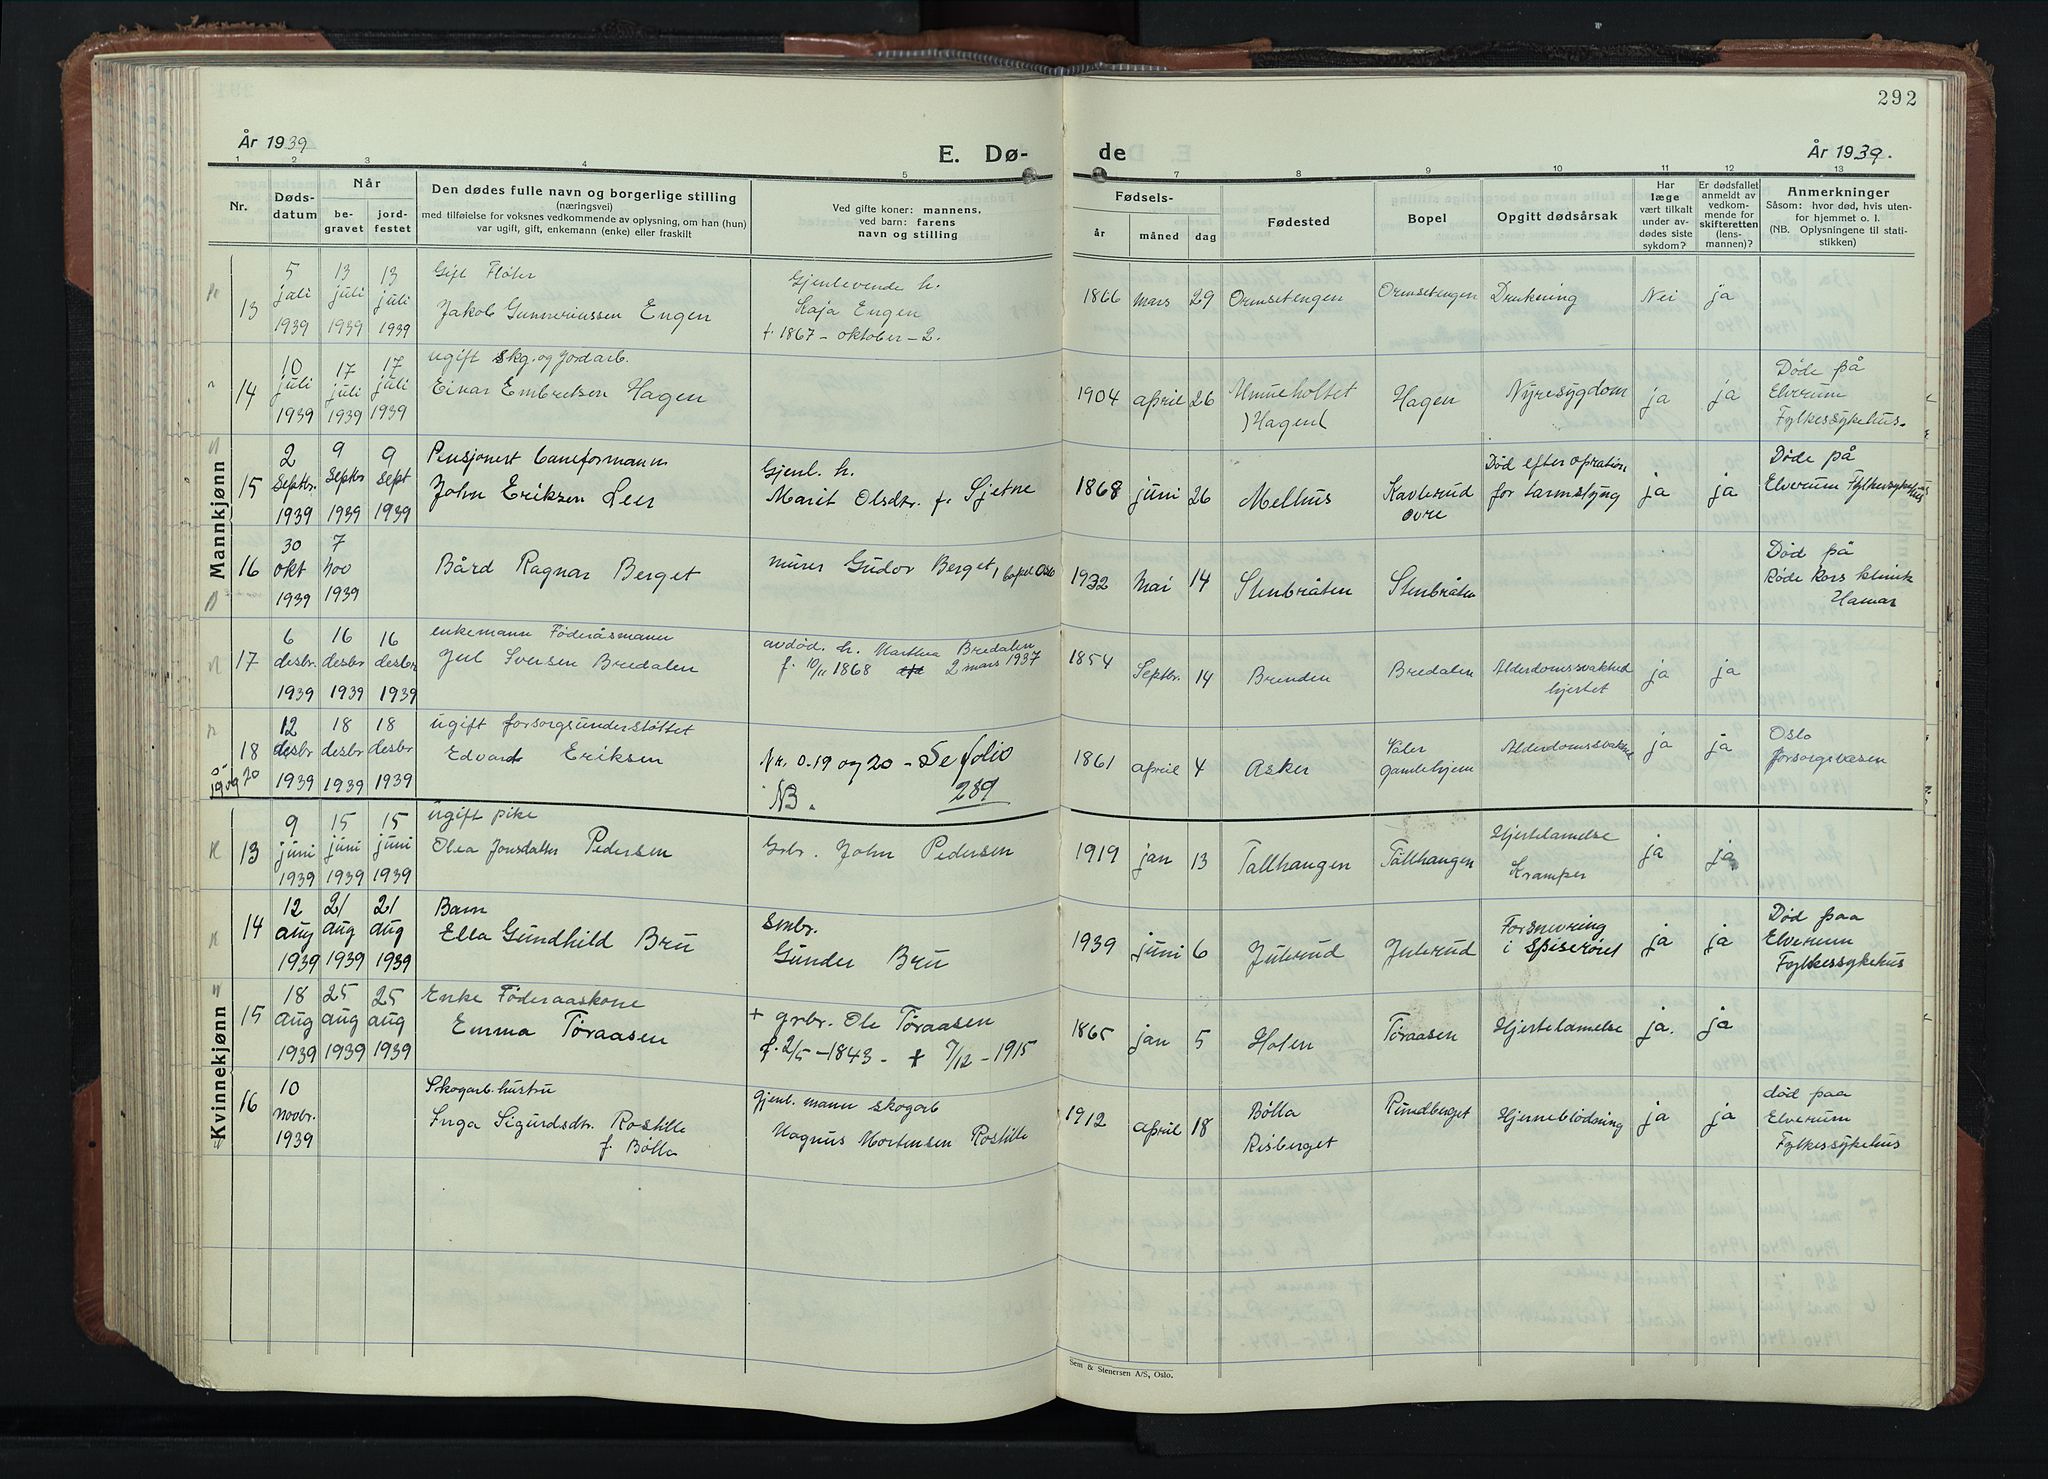 292
År 1939
E. Dø-
de
År 1939.
1 2 3 4 5 7 8 9 10 11 12 13
Nr.
Døds-
datum
Når
be-
gravet
jord-
festet
Den dødes fulle navn og borgerlige stilling
(næringsvei)
med tilføielse for voksnes vedkommende av oplysning, om han (hun)
var ugift, gift, enkemann (enke) eller fraskilt
Ved gifte koner: mannens,
ved barn: farens
navn og stilling
Fødsels-
år måned dag
Fødested
Bopel
Opgitt dødsårsak
Har
læge
vært tilkalt
under av-
dødes siste
sykdom?
Er dødsfallet
anmeldt av
vedkom-
mende for
skifteretten
(lens-
mannen)?
Anmerkninger
Såsom: hvor død, hvis uten-
for hjemmet o. l.
(NB. Oplysningene til stati-
stikken)
Mannkjønn
13
5
juli
1939
13
juli
1939
13
juli
1939
Gift Fløter
Jakob Gunneriussen Engen
Gjenlevende h.
Kaja Engen
f. 1867 - oktober - 2.
1866 mars 29 Ormsetengen Ormsetengen Drukning Nei ja
14
10
juli
1939
17
juli
1939
17
juli
1939
ugift skg. og jordarb.
Einar Embretsen Hagen
1904 april 26
)Hagen(
Hagen Nyresygdom ja ja
Døde på
Elverum
Fylkessykehus.
15
2
Septbr.
1939
9
Septbr
1939
9
sept
1939
Pensjonert baneformann
John Eriksen Leer
Gjenl. h.
Marit Olsdtr. f. Sjetne
1868 juni 26 Melhus
Kavlerud
øvre
Død efter opration
for tarmslyng
ja ja
Døde på
Elverum Fylkessykehus
16
30
okt
1939
7
nov
1939
Bård Ragnar Berget
murer Gudov Berget, bopel Oslo
1932 Mai 14 Stenbråten Stenbråten
Død på
Røde Kors klinik
Hamar
17
6
desbr.
1939
16
desbr
1939
16
desbr
1939
enkemann Föderåsmann
Jul Iversen Bredalen
avdød. h. Marthea Bredalen
f. 10/11 1868 2 mars 1937
1854 Septbr. 14 Brenden Bredalen
Alderdomssvakhed
hjertet
ja ja
18
12
desbr
1939
18
desbr
1939
18
desbr
1939
ugift forsorgsunderstøttet
Edvard Eriksen
Nr. 0.19 og 20 - Se folio
NB. 289
1861 april 4 Asker
Våler
gamlehjem
Alderdomssvakhed
ja ja
Oslo
forsorgsvæsen
19 og 20
Kvinnekjønn
13
9
juni
1939
15
juni
1939
15
juni
1939
ugift pike
Olea Jonsdatter Pedersen
Grbr. John Pedersen
1919 jan 13 Tallhaugen Tallhaugen
Hjertelamelse
Kramper
ja ja
14
12
aug
1939
21
aug
1939
21
aug
1939
Barn
Ella Gundhild Bru
Smbr.
Gunder Bru
1939 juni 6 Julerud Julerud
Forsnevring
i Spiserøret
ja ja
Død paa
Elverum
Fylkessykehus
15
18
aug
1939
25
aug
1939
25
aug
1939
Enke Föderaaskone
Emma Tøraasen
+ grbr. Ole Tøraasen
f. 2/5 - 1843 - + 7/12 - 1915
1865 jan 5 Holen Tøraasen Hjertelamelse ja. ja
16
10
novbr.
1939
Skogarb. hustru
Inga Sigurdsdtr. Rostille
f. Bølla
Gjenl. mann skogarb
Magnus Mortensen Rostille
1912 april 18
Bølla
Risberget
Rundberget Hjerneblödning ja ja
död paa
Elverum
Fylkessykehus
Sem & Stenersen A/S, Oslo.